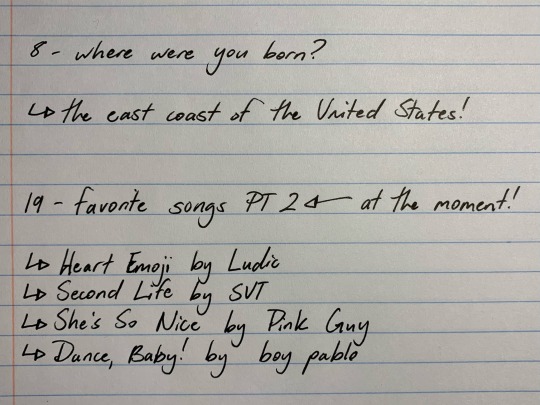 8 - where were you born?
↳ the east coast of the United States!
19 - favorite songs PT 2 ← at the moment!
↳ Heart Emoji by Ludic
↳ Second Life by SVT
↳ She's So Nice by Pink Guy
↳ Dance, Baby! by boy pablo